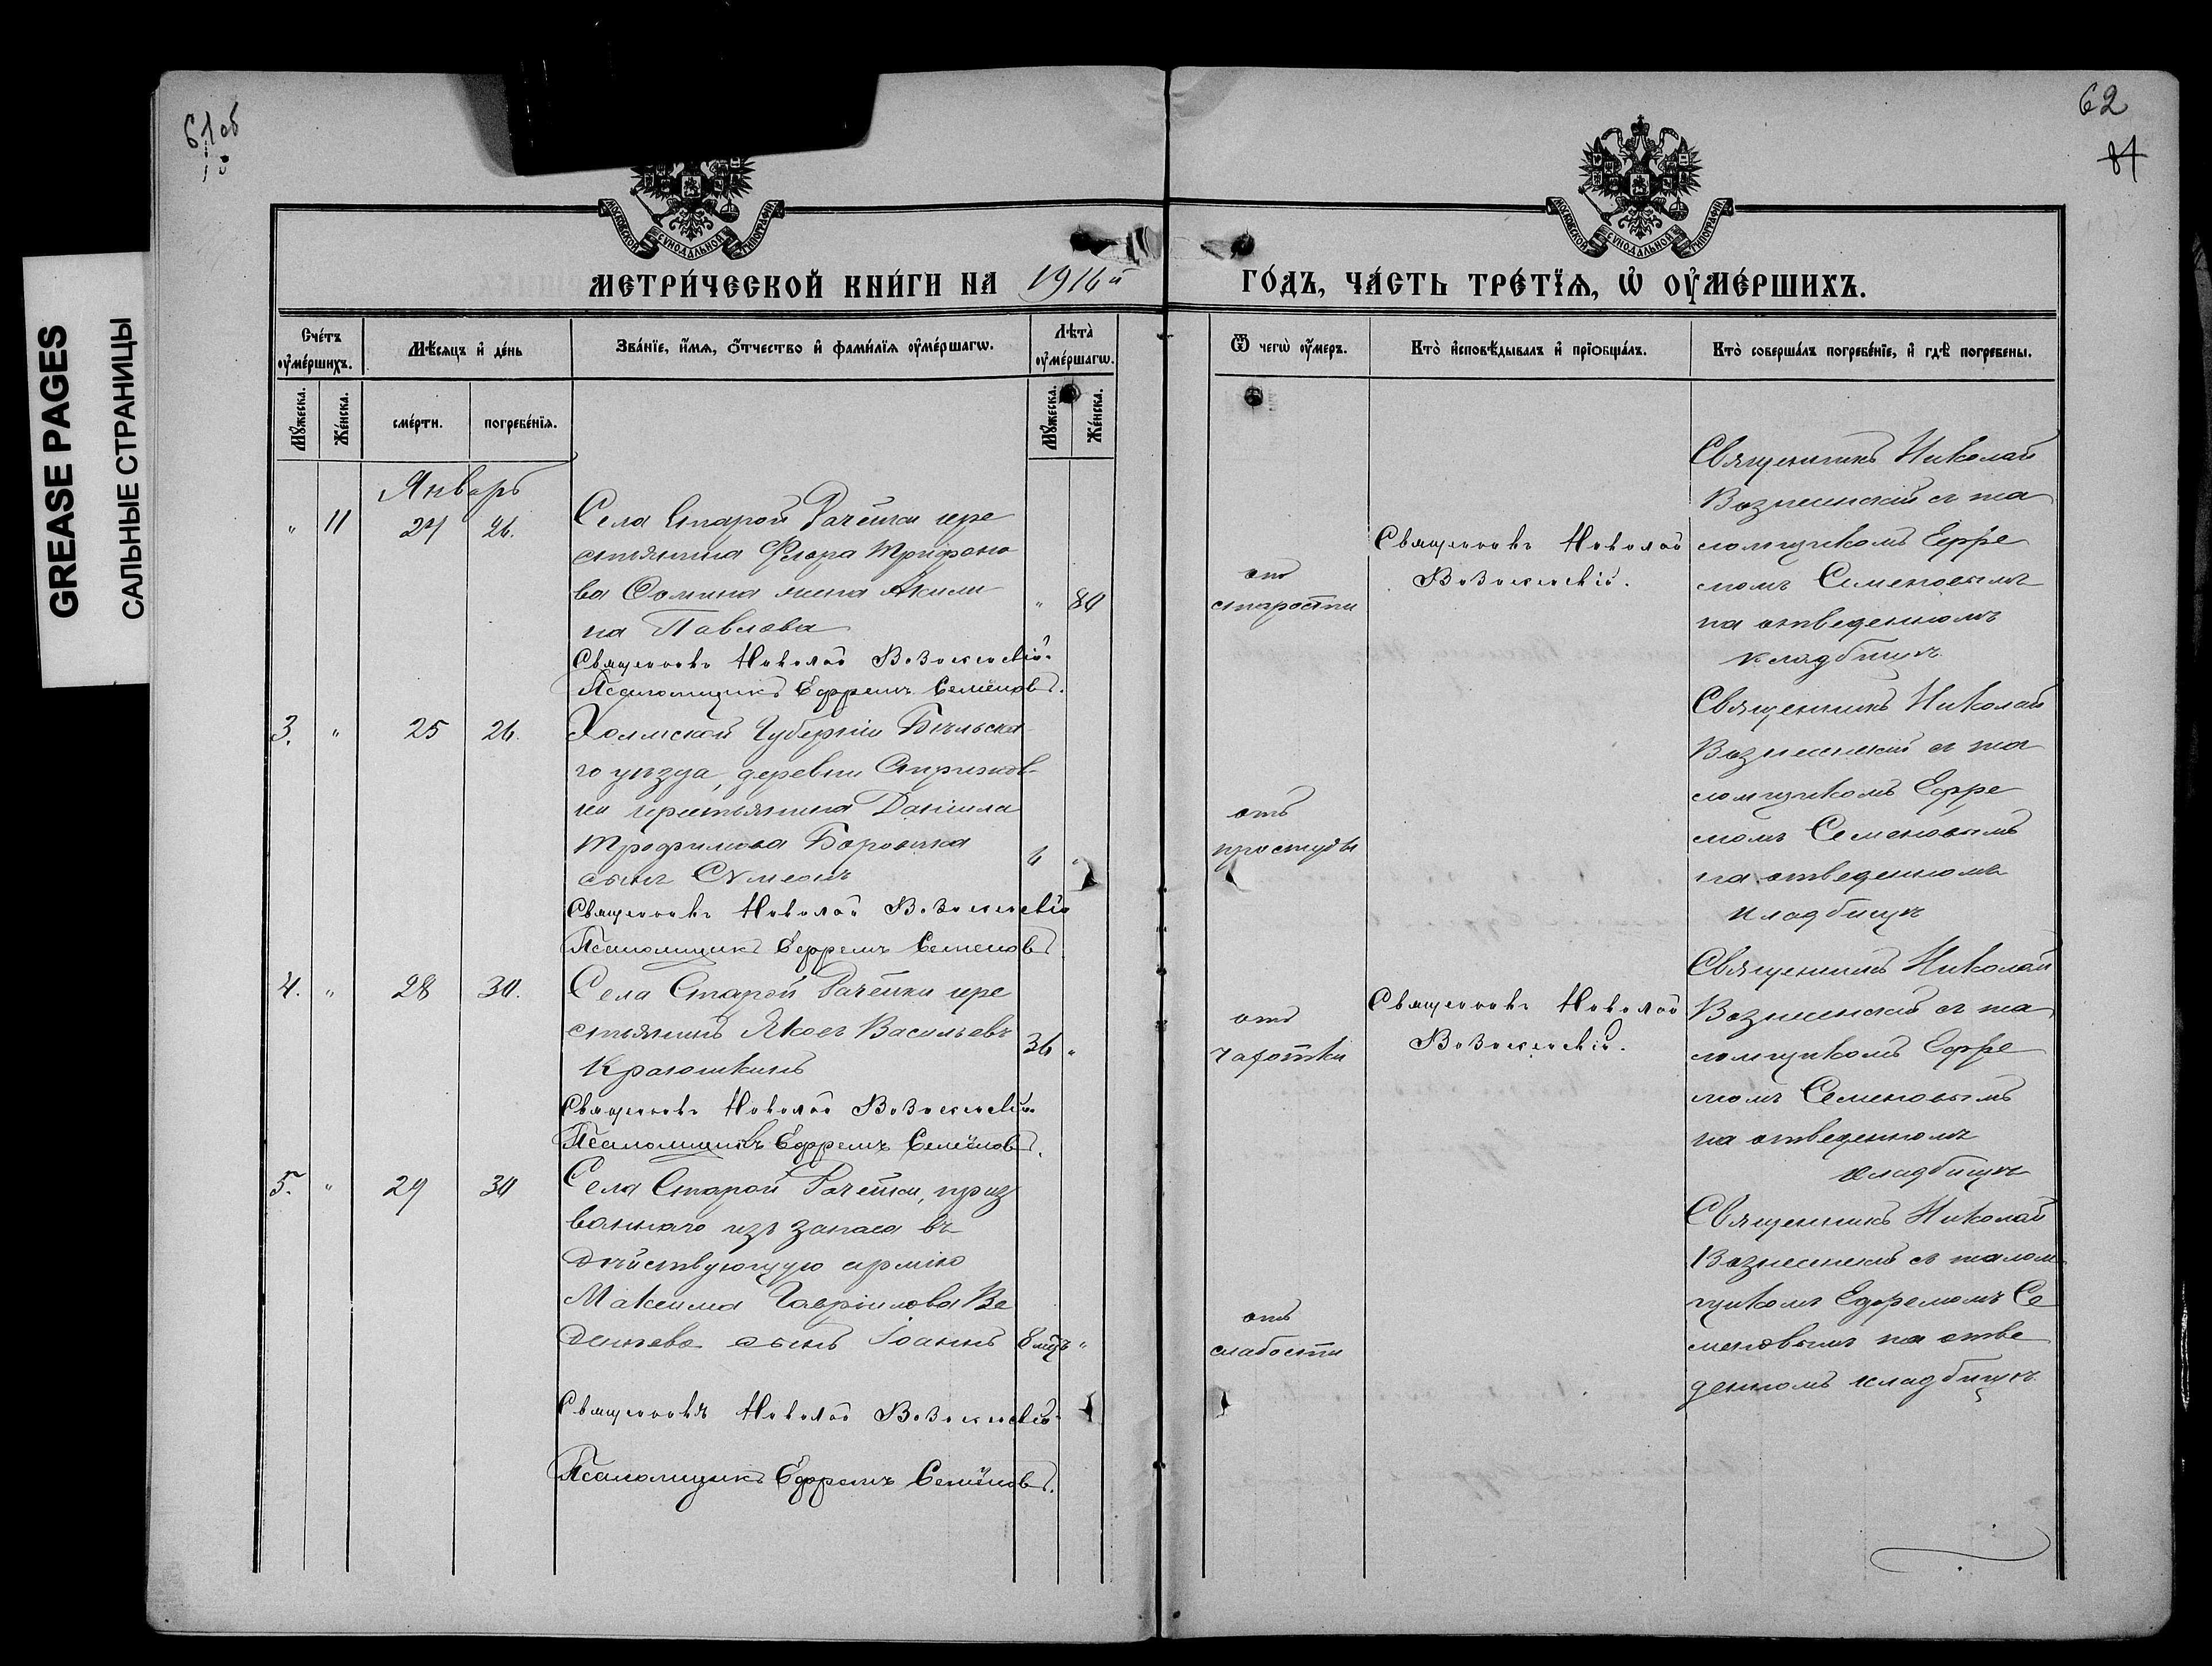 61об
62
84
GREASE PAGES
САЛЬНЫЕ СТРАНИЦЫ
МОСКОВСКОЙ СѴНОДАЛЬНОЙ ТИПОГРАФІИ
МОСКОВСКОЙ СѴНОДАЛЬНОЙ ТИПОГРАФІИ
МЕТРИ́ЧЕСКОЙ КНИ́ГИ НА 1916й
ГО́ДЪ, ЧА́СТЬ ТРЕ́ТЇѦ, Ѡ҆ ОУ҆МЕ́РШИХЪ.
Сче́тъ оу҆ме́ршихъ.
Мѣ́сяцъ и҆ де́нь
Зва́нїе, и҆́мѧ, ѻ҆́тчество и҆ фами́лїѧ оу҆ме́ршагѡ.
Лѣта̀ оу҆ме́ршагѡ.
Ѿ чегѡ̀ оу҆́меръ.
Кто̀ и҆сповѣ́дывалъ и҆ прїобща́лъ.
Кто̀ соверша́лъ погребе́нїе, и҆ гдѣ̀ погребены.
Мꙋ́жеска.
Же́нска.
сме́рти.
погребе́нїѧ.
Мꙋ́жеска.
Же́нска.
Январь
" 11 24 26.
Села Старой Рачейки кре
стьянина Флора Трифоно
ва Сомина жена Акили
на Павлова
" 80
Священникъ Николай Вознесенскій.
Псаломщикъ Ефремъ Семёновъ.
отъ
старости
Священникъ Николай
Вознесенскій.
Священникъ Николай
Вознесенскій съ пса
ломщикомъ Ефре
момъ Семеновымъ
на отведенномъ
кладбищѣ
3. " 25 26.
Холмской Губерніи Бѣльска
го уѣзда, деревни
крестьянина Даніила
Трофимова
сынъ Сѵмеонъ
6 "
Священникъ Николай Вознесенскій
Псаломщикъ Ефремъ Семеновъ.
отъ
простуды
Священникъ Николай
Вознесенскій съ пса
ломщикомъ Ефре
момъ Семеновымъ
на отведенномъ
кладбищѣ
4. " 28 30.
Села Старой Рачейки кре
стьянинъ Яковъ Васильевъ
36 "
Священникъ Николай Вознесенскій.
Псаломщикъ Ефремъ Семёновъ.
отъ
чахотки
Священникъ Николай
Вознесенскій.
Священникъ Николай
Вознесенскій съ пса
ломщикомъ Ефре
момъ Семеновымъ
на отведенномъ
кладбищѣ
5. " 29 30
Села Старой Рачейки, приз
ваннаго изъ запаса въ
дѣйствующую армію
Максима Гавріилова Ве
денѣева сынъ Іоаннъ
8 мцъ "
Священникъ Николай Вознесенскій.
Псаломщикъ Ефремъ Семёновъ.
отъ
слабости
Священникъ Николай
Вознесенскій съ псалом
щикомъ Ефремомъ Се
меновымъ на отве
денномъ кладбищѣ